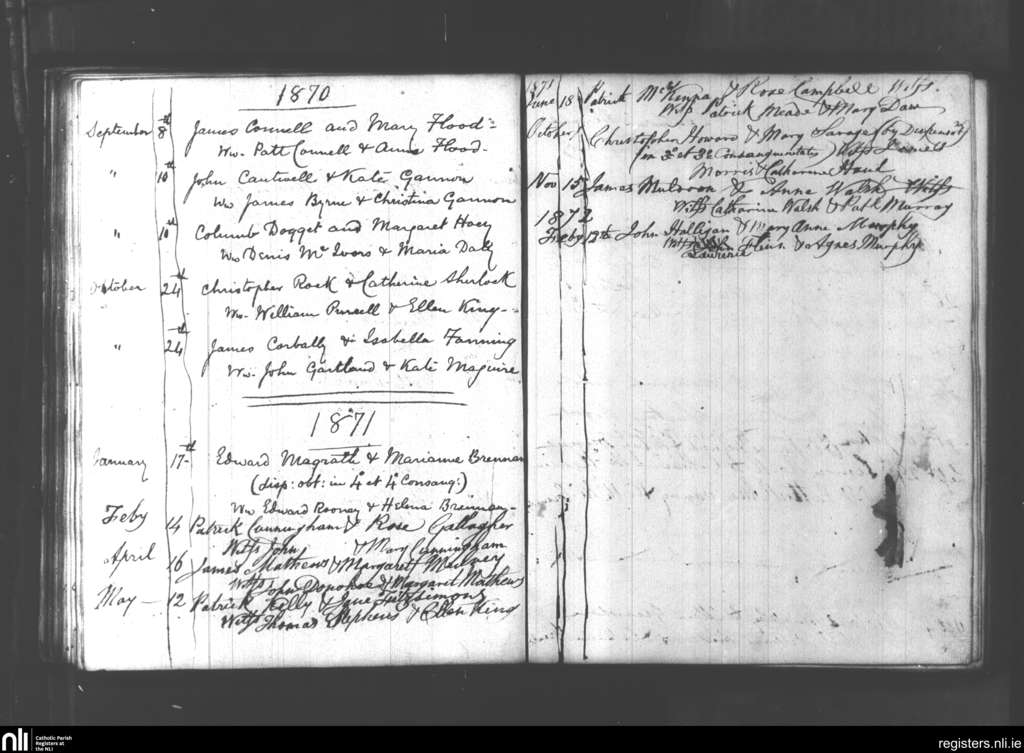 1870
September 8 James Connell and Mary Flood-
Ws. Patt Connell & Anne Flood-
" 10th John Cantwell & Kate Gannon
Ws James Byrne & Christina Gannon
" 10th Columb Dogget and Margaret Hoey
Ws Denis Mc Ivors & Maria Daly
October 24th Christopher Rock & Catherine Sherlock
Ws. William Purcell & Ellen King-
" 24th James Corbally & Isabella Fanning
Ws. John Gartland & Kate Maguire
1871
January 17th Edward Magrath & Marianne Brennan
(disp: obt: in 4 et 4 Consang:)
Ws Edward Rooney & Helena Brennan-
Feby 14 Patrick Cunningham & Rose Gallagher
Witss John & Mary Cunningham
April 16 James Mathews & Margaret
Witss John Donohoe & Margaret Mathews
May - 12 Patrick Kelly & Jane Fitzsimons
Witss Thomas Stephens & Ellen King
1871
June 18 Patrick McKenna & Rose Campbell Witss.
Witss Patrick Meade & Mary Daw
October Christopher Howard & Mary Savage (by Dispensatn
in 3 et 3 Consanguinitatis) Witss
Morris & Catherine Hand
Nov 15 James Muldoon & Anne Walsh Witss
Witss Catharine Walsh & Patk Murray
1872
Feby 12th John Halligan & Mary Anne Murphy
Witss John & Agnes Murphy
Lawrence
nli Catholic Parish
Registers at
the NLI
registers.nli.ie